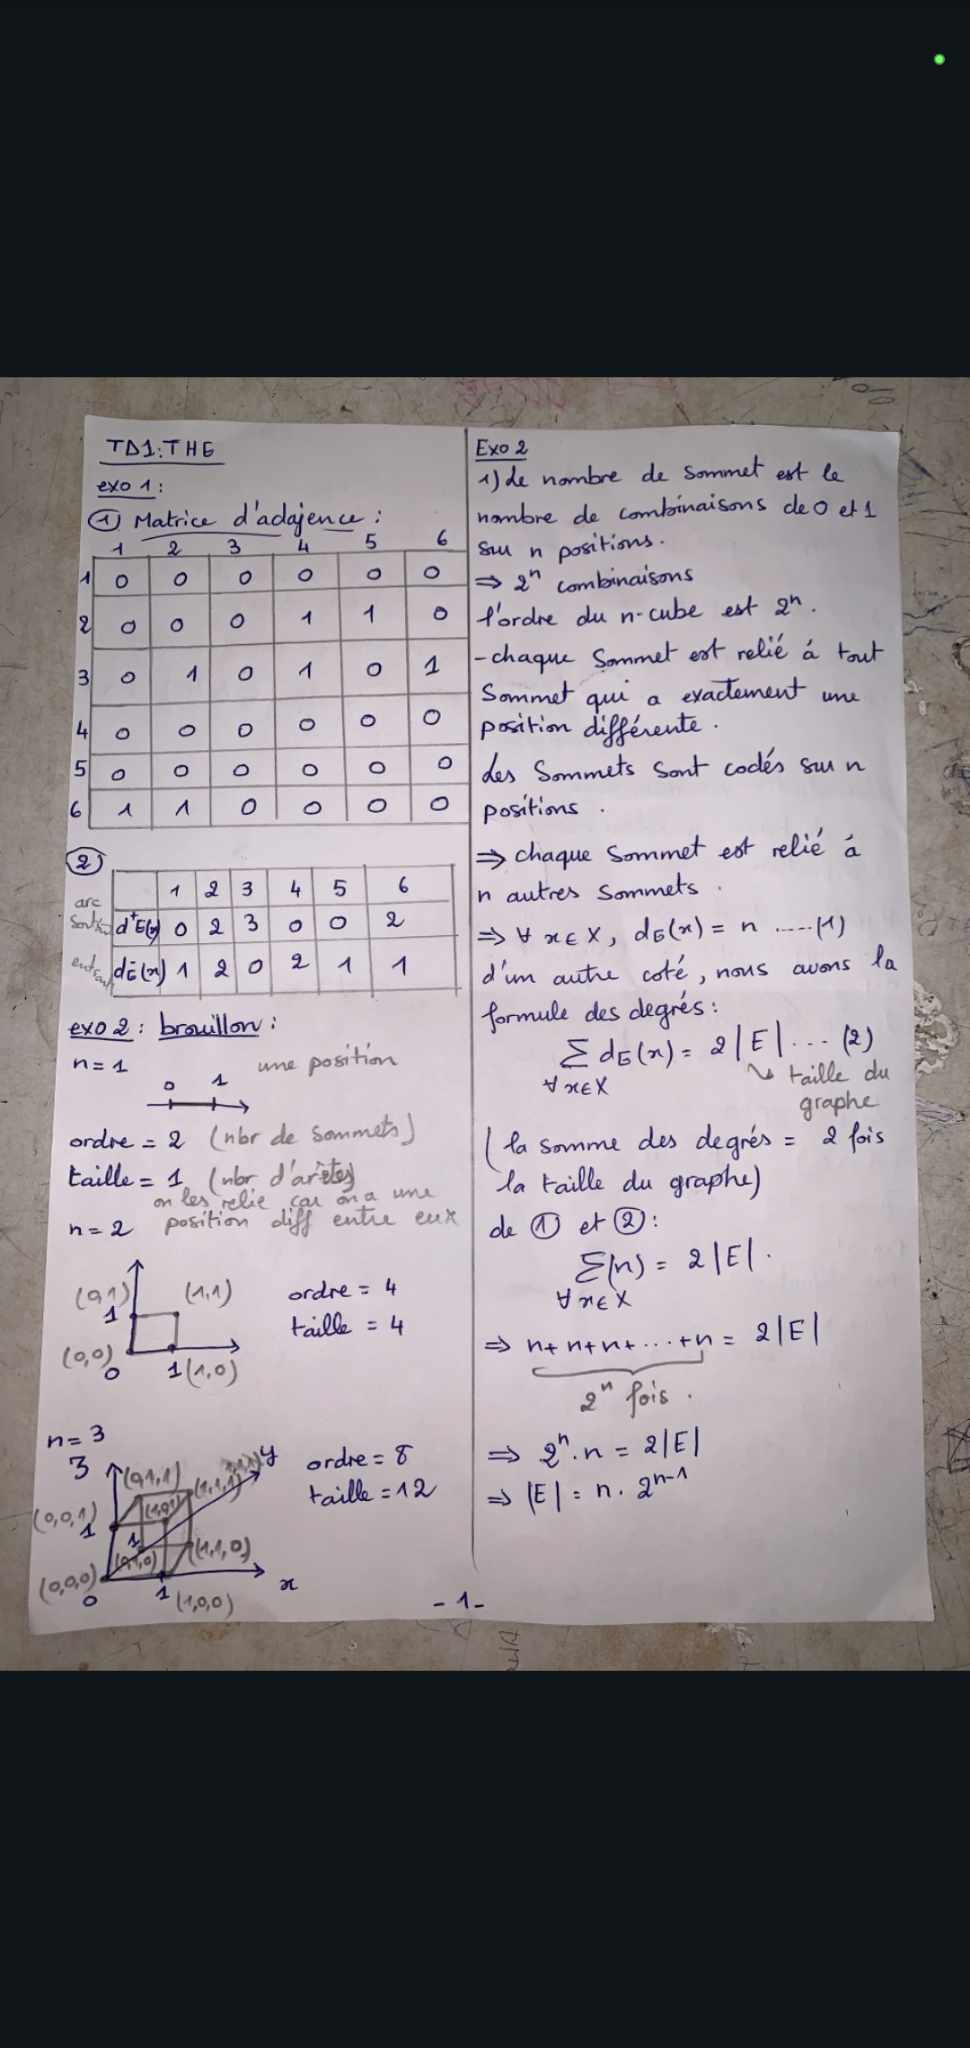 TD1:THG
exo 1:
① Matrice d'adajence:
1 2 3 4 5 6
1 0 0 0 0 0 0
2 0 0 0 1 1 0
3 0 1 0 1 0 1
4 0 0 0 0 0 0
5 0 0 0 0 0 0
6 1 1 0 0 0 0
②
1 2 3 4 5 6
arc
d⁺E(x) 0 2 3 0 0 2
d⁻E(x) 1 2 0 2 1 1
exo 2: brouillon:
n=1 une position
0 1
ordre = 2 (nbr de sommets)
taille = 1 (nbr d'arêtes)
on les relie car on a une
n=2 position diff entre eux
(0,1) (1,1) ordre = 4
1 taille = 4
(0,0) 0 1 (1,0)
n=3
3 y ordre = 8
(0,1,1) (1,1,1) taille = 12
(0,0,1) (1,0,1)
1
1
(0,1,0) (1,1,0)
(0,0,0) x
0 1 (1,0,0)
Exo 2
1) Le nombre de sommet est le
nombre de combinaisons de 0 et 1
sur n positions.
⇒ 2ⁿ combinaisons
l'ordre du n-cube est 2ⁿ.
- chaque sommet est relié à tout
sommet qui a exactement une
position différente.
Les sommets sont codés sur n
positions.
⇒ chaque sommet est relié à
n autres sommets.
⇒ ∀ x∈X, dE(x) = n .....(1)
d'un autre coté, nous avons la
formule des degrés:
∑ dE(x) = 2|E| ... (2)
∀x∈X taille du
graphe
(la somme des degrés = 2 fois
la taille du graphe)
de ① et ②:
∑(n) = 2|E|.
∀x∈X
⇒ n+n+n+...+n = 2|E|
2ⁿ fois.
⇒ 2ⁿ.n = 2|E|
⇒ |E| = n.2ⁿ⁻¹
-1-